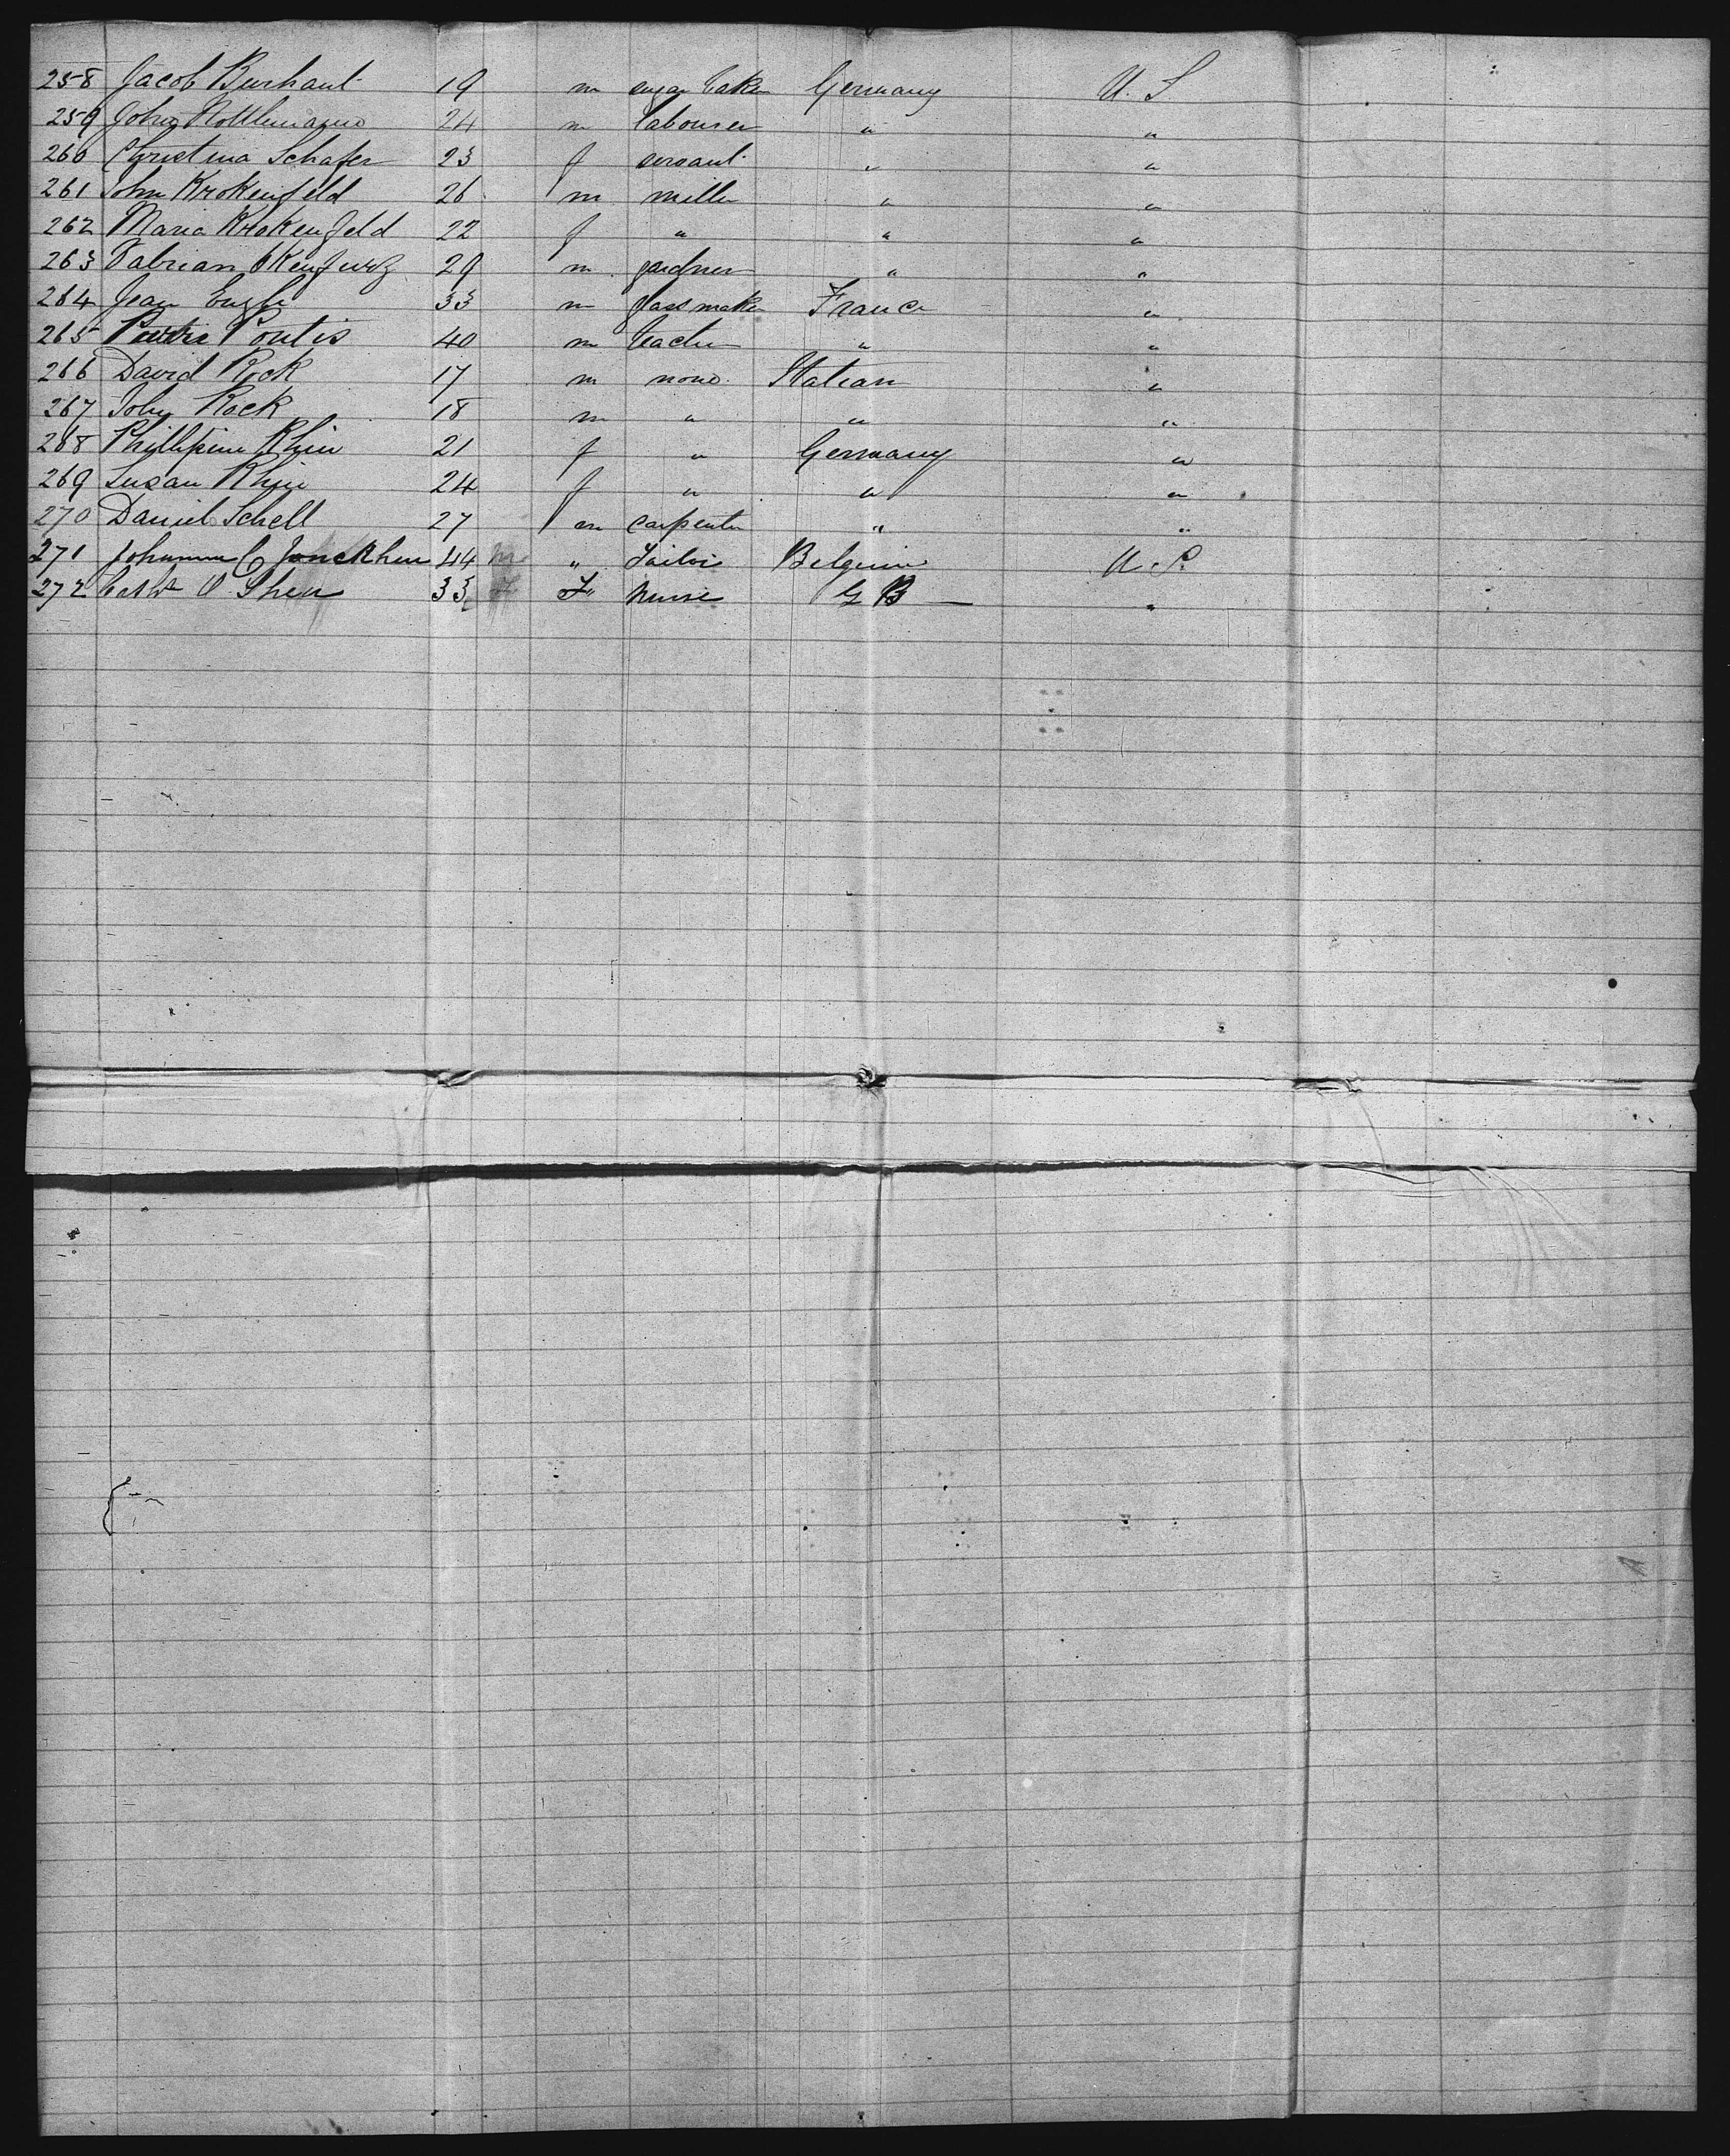 258 Jacob Burhaut 19 m sugar baker Germany U. S.
259 John Nottlemann 24 m labourer " "
260 Christina Schafer 23 f servant " "
261 John Krokenfeld 26 m miller " "
262 Maria Krokenfeld 22 f " " "
263 Fabrian 29 m gardner " "
264 Jean Engle 33 m glassmaker France "
265 Pontis 40 m teacher " "
266 David Rock 17 m none Italian "
267 John Rock 18 m " " "
268 Phillipine Rhin 21 f " Germany "
269 Susan Rhin 24 f " " "
270 Daniel Schell 27 m carpenter " "
271 Johannes C Jonckheu 44 m " Tailor Belgium U. S.
272 O. Shea 33 F " Nurse G B "